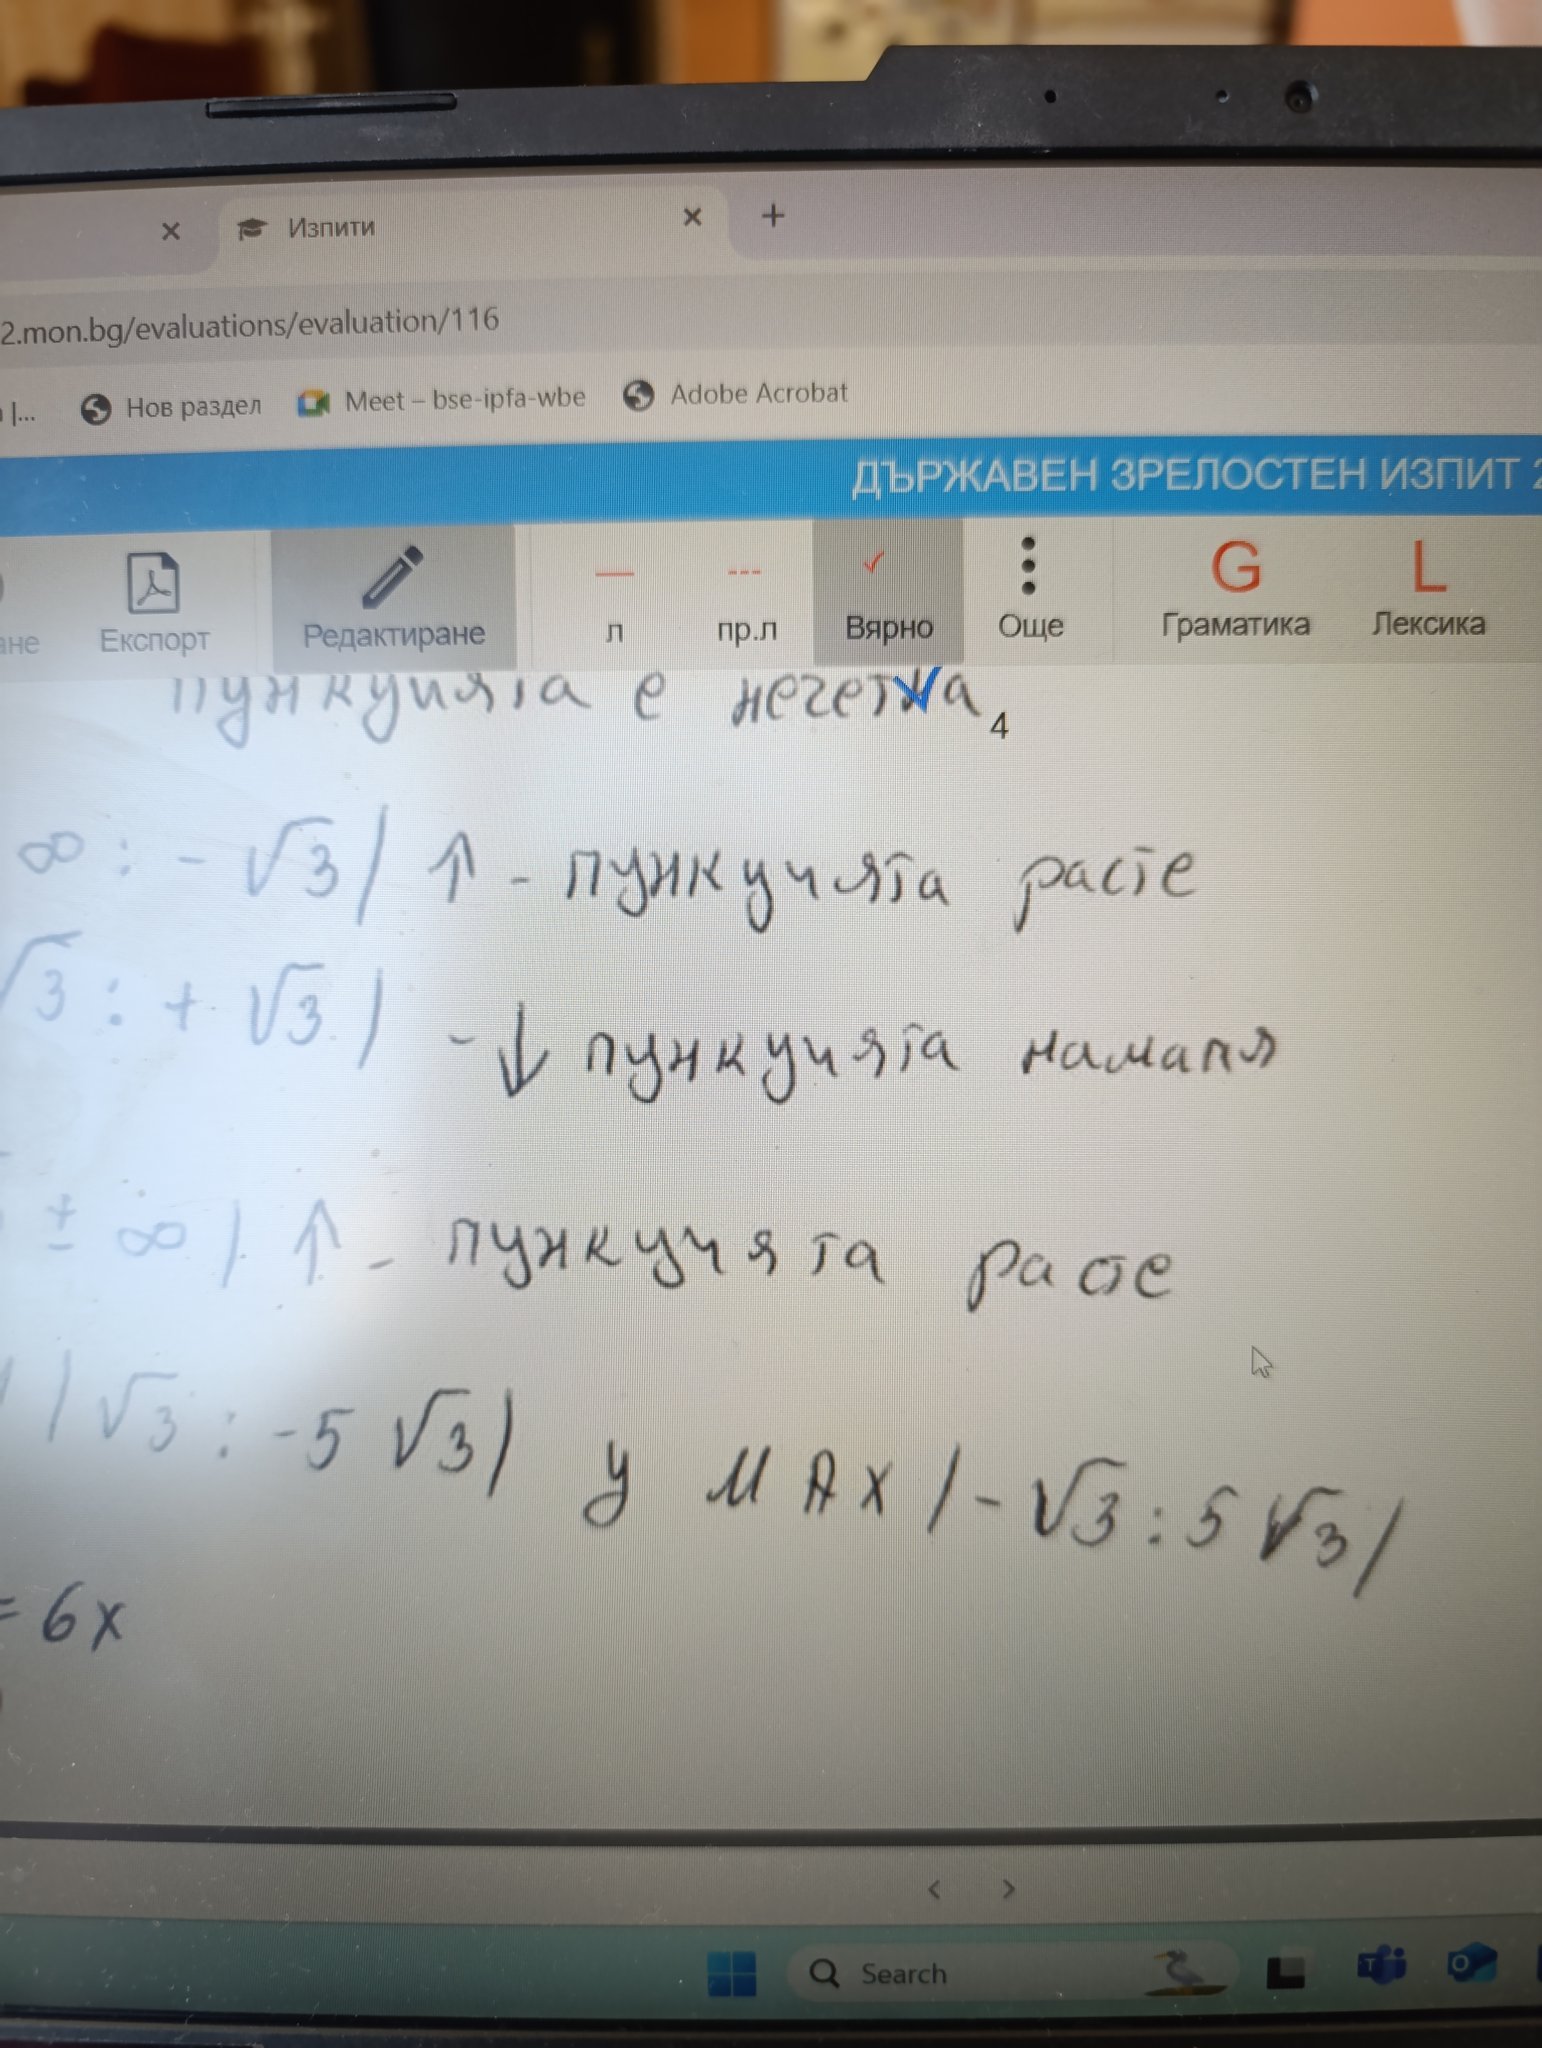 Изпити
2.mon.bg/evaluations/evaluation/116
Нов раздел Meet – bse-ipfa-wbe Adobe Acrobat
ДЪРЖАВЕН ЗРЕЛОСТЕН ИЗПИТ 2
ане Експорт Редактиране л пр.л Вярно Още G Граматика L Лексика
пункцията е нечетна 4
∞ : - √3 / ↑ - пункцията расте
√3 : + √3 / - ↓ пункцията намаля
± ∞ / ↑ - пункцията расте
/ √3 : -5 √3 / у MAX / - √3 : 5 √3 /
= 6x
Search